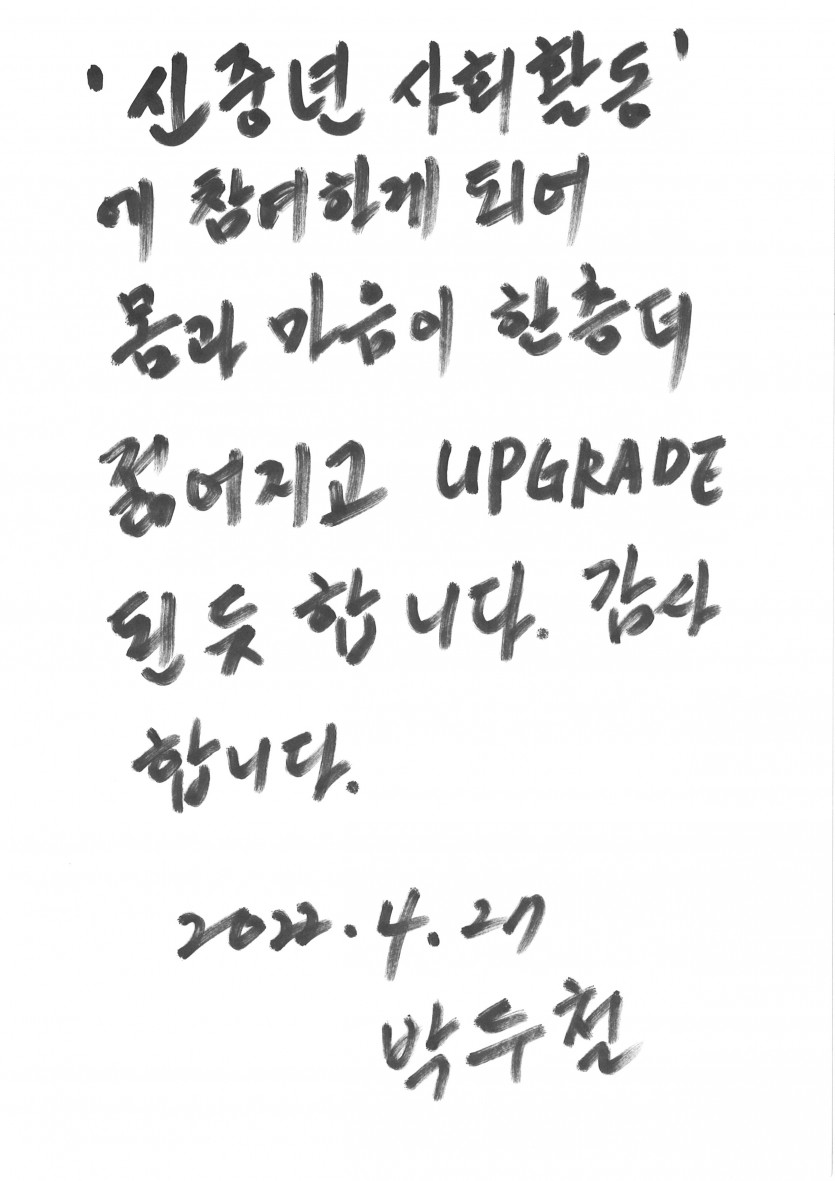 '신중년 사회활동'
에 참여하게 되어
몸과 마음이 한층더
젊어지고 UPGRADE
된듯 합니다. 감사
합니다.
2022.4.27
박두철